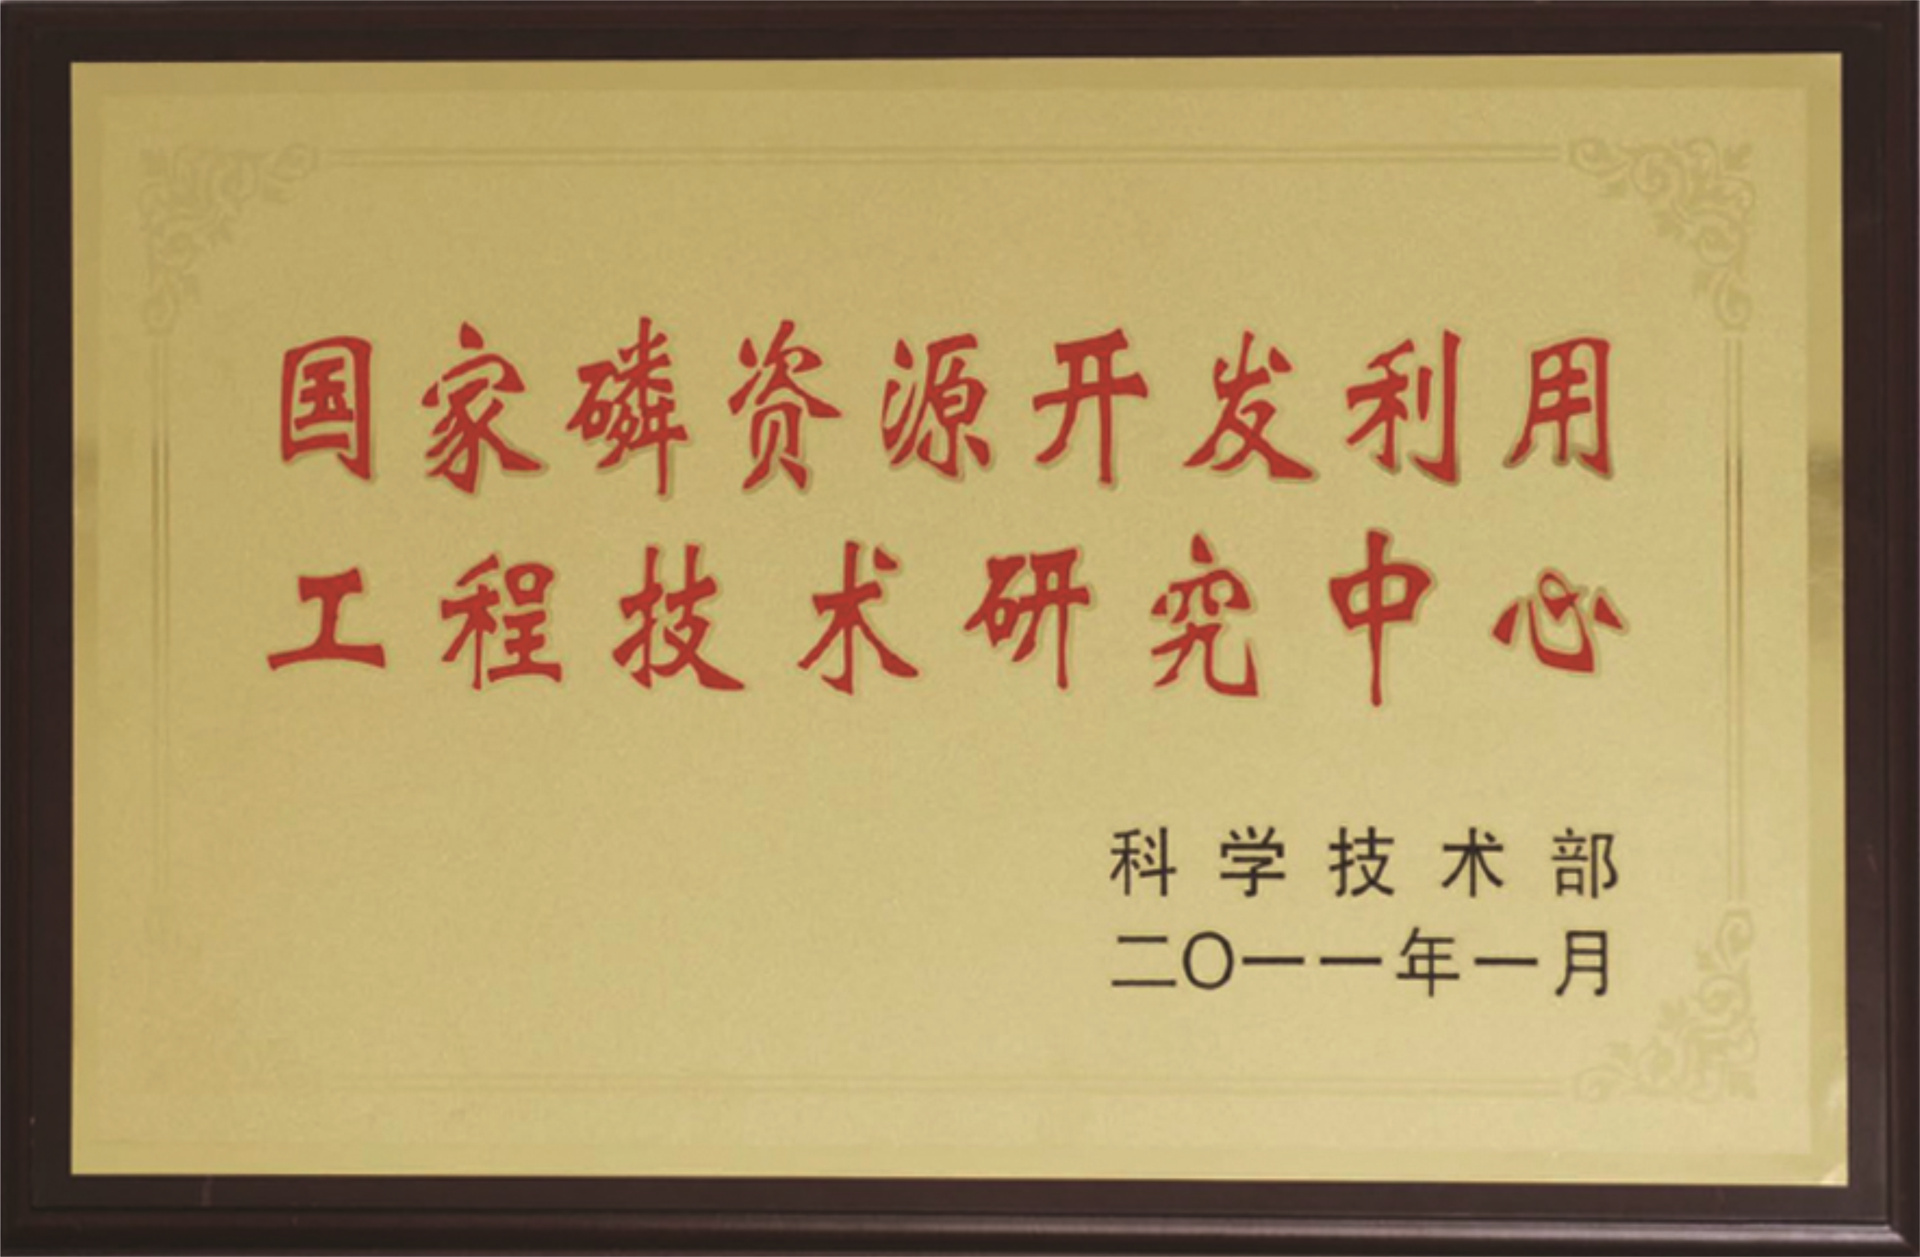 国家磷资源开发利用
工程技术研究中心
科学技术部
二〇一一年一月